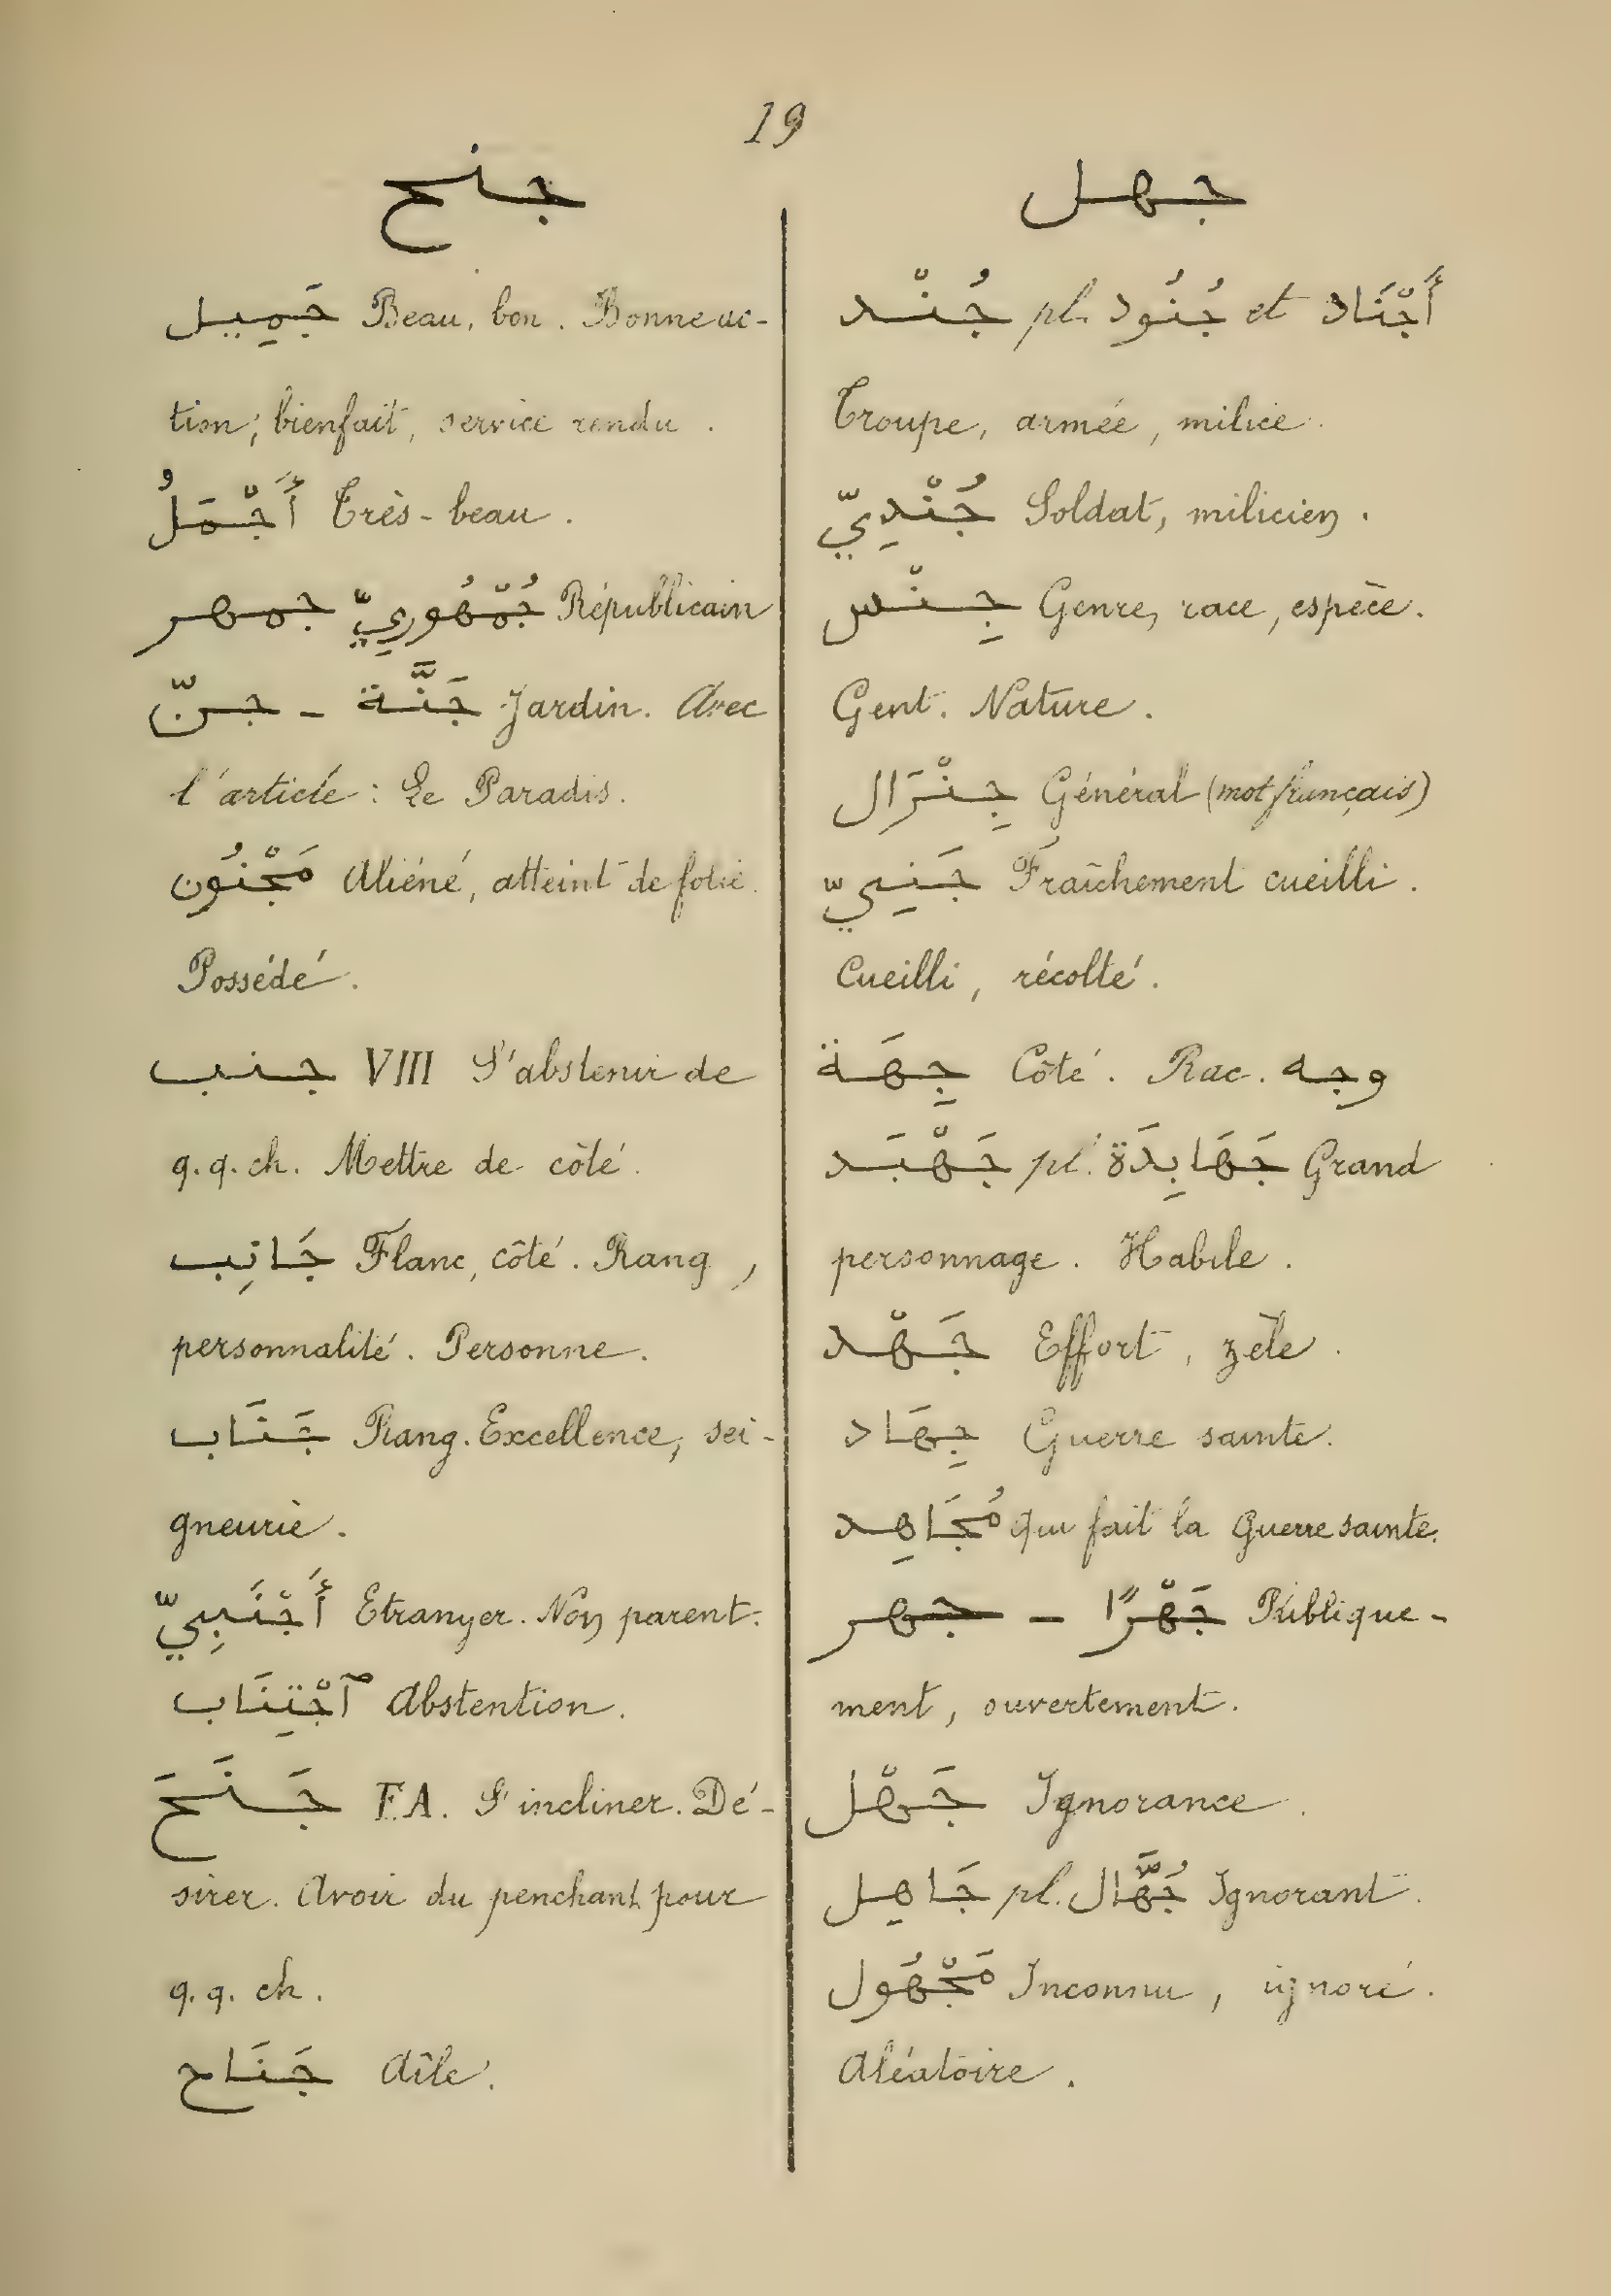 19
جنح
جَمِيل Beau, bon. Bonne ac-
tion; bienfait, service rendu.
أَجْمَلُ Très-beau.
جمهر جُمْهُورِيّ Républicain
جنّ - جَنَّة Jardin. Avec
l'article : Le Paradis.
مَجْنُون Aliéné, atteint de folie.
Possédé.
جنب VIII S'abstenir de
q.q.ch. Mettre de côté.
جَانِب Flanc, côté. Rang,
personnalité. Personne.
جَنَاب Rang. Excellence, sei-
gneurie.
أَجْنَبِيّ Etranger. Non parent.
ٱجْتِنَاب Abstention.
جَنَحَ F.A. S'incliner. Dé-
sirer. Avoir du penchant pour
q.q. ch.
جَنَاح Aîle.
جهل
جُنْد pl. جُنُود et أَجْنَاد
Troupe, armée, milice.
جُنْدِيّ Soldat, milicien.
جِنْس Genre, race, espèce.
Gent. Nature.
جِنْرَال Général (mot français)
جَنِيّ Fraîchement cueilli.
Cueilli, récolté.
جِهَة Côté. Rac. وجه
جَهْبَد pl. جَهَابِدَة Grand
personnage. Habile.
جَهْد Effort, zèle.
جِهَاد Guerre sainte.
مُجَاهِد qui fait la Guerre sainte.
جهر - جَهْرًا Publique-
ment, ouvertement.
جَهْل Ignorance.
جَاهِل pl. جُهَّال Ignorant.
مَجْهُول Inconnu, ignoré.
Aléatoire.